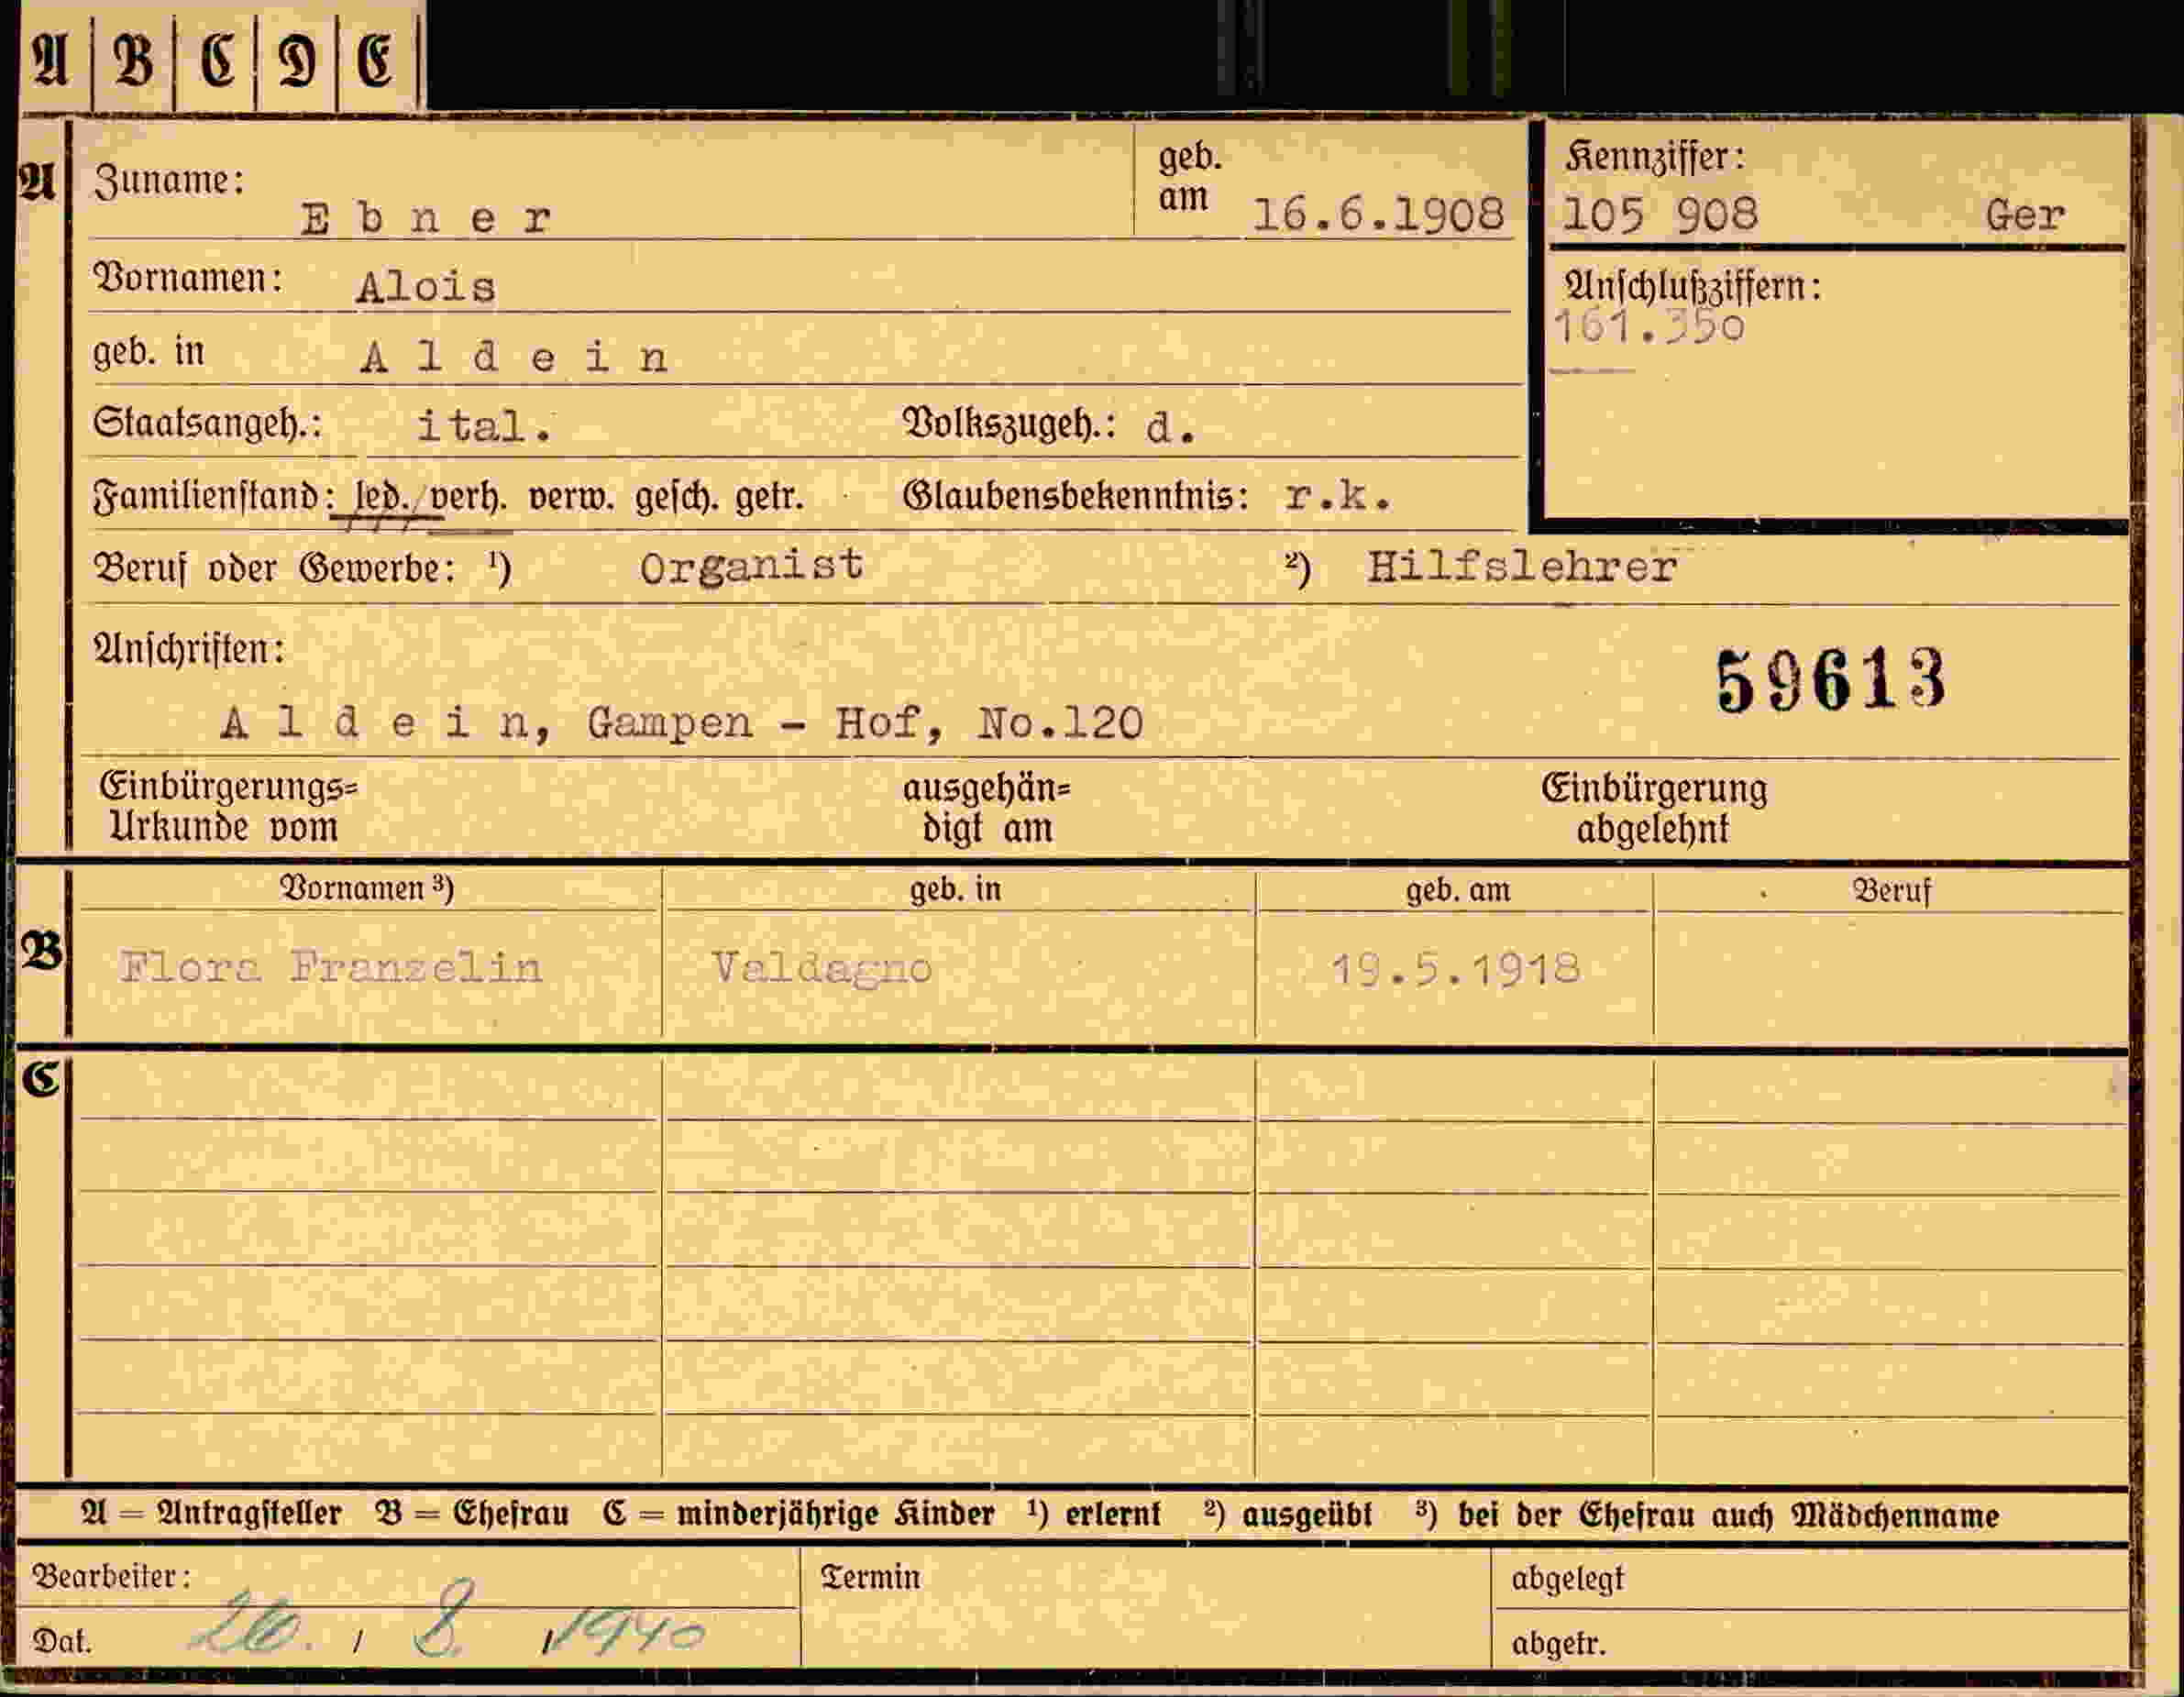 A B C D E
A Zuname: Ebner geb. am 16.6.1908
Kennziffer: 105 908 Ger
Vornamen: Alois
Anschlußziffern:
161.350
geb. in Aldein
Staatsangeh.: ital. Volkszugeh.: d.
Familienstand: led. verh. verw. gesch. getr. Glaubensbekenntnis: r.k.
Beruf oder Gewerbe: ¹) Organist ²) Hilfslehrer
Anschriften:
59613
Aldein, Gampen - Hof, No.120
Einbürgerungs= ausgehän= Einbürgerung
Urkunde vom digt am abgelehnt
Vornamen ³) geb. in geb. am Beruf
B Flora Franzelin Valdagno 19.5.1918
C
A = Antragsteller B = Ehefrau C = minderjährige Kinder ¹) erlernt ²) ausgeübt ³) bei der Ehefrau auch Mädchenname
Bearbeiter: Termin abgelegt
Dat. 26. / 8. / 1940 abgetr.